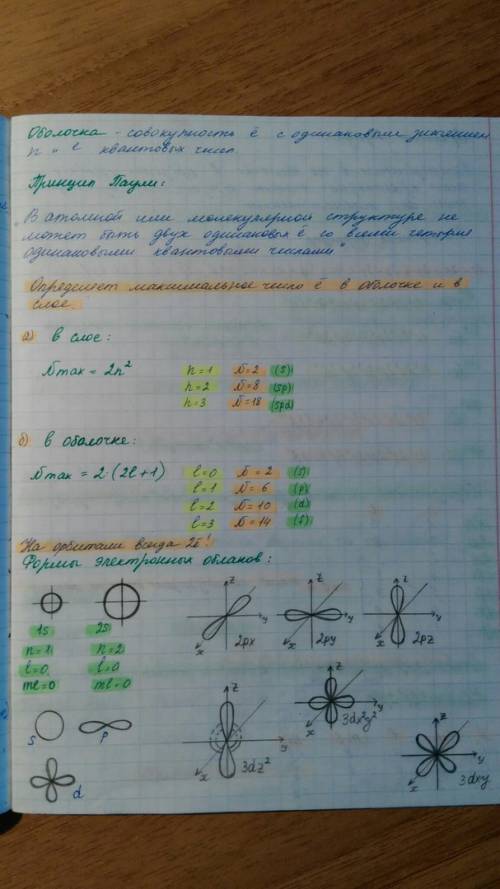 Оболочка - совокупность ē с одинаковым значением
n и l квантовых чисел
Принцип Паули:
"В атомной или молекулярной структуре не
может быть двух одинаковых ē со всеми четырьмя
одинаковыми квантовыми числами"
Определяет максимальное число ē в оболочке и в
слое.
а) в слое:
Nmax = 2n² n=1 N=2 (s)
n=2 N=8 (sp)
n=3 N=18 (spd)
б) в оболочке:
Nmax = 2·(2l+1) l=0 N=2 (s)
l=1 N=6 (p)
l=2 N=10 (d)
l=3 N=14 (f)
На орбитали всегда 2ē!
Формы электронных облаков:
1s 2s
n=1 n=2
l=0 l=0
ml=0 ml=0
z y x 2px
z y x 2py
z y x 2pz
s p
d
z y x 3dz²
z y x 3dx²z²
z y x 3dxy